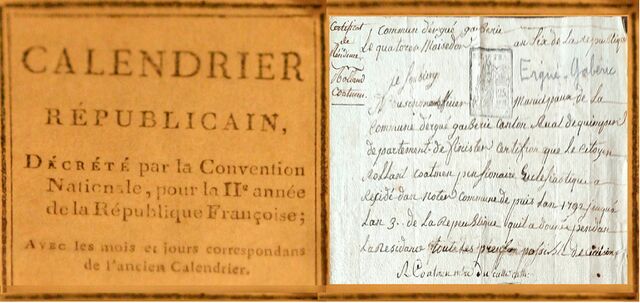 CALENDRIER
RÉPUBLICAIN,
DÉCRÉTÉ par la Convention
Nationale, pour la IIe année
de la République Françoise;
AVEC les mois et jours correspondans
de l'ancien Calendrier.
Certificat
de
Résidence
Rolland
Coatmen
Commune dergué gaberic
Le quatorze Messedor an six de la republique
Ergué-Gabéric
je soussigny
municipaux de la
Commune dergué gaberic Canton Rural de quimper
departement du finister certifion que le citoyen
Rolland coatmen pensionaire Eclesiastique a
Residé dan notre commune depuis lan 1792 jusqua
Lan 3e de La Republique quil a donné pendan
La Residance toutes les preuves